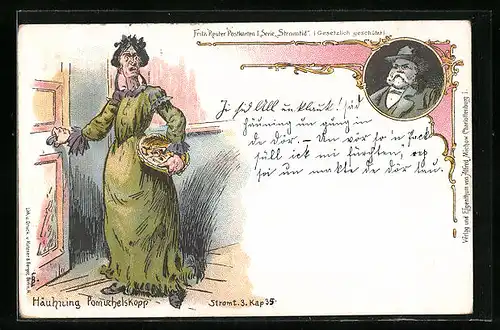 Fritz Reuter Postkarten I. Serie, „Stromtid". (Gesetzlich geschützt)
Ji sid All unklauk! säd
Häuning un gung in
de Dör. – Un vör so'n Pack
süll ick mi fürchten," rep
sei un makte de Dör tau.
Häuhning Pomuchelskopp
Stromt. 3. Kap 35
Verlag und Eigenthum von Alfred Michow Charlottenburg I
Lith. u. Druck v.